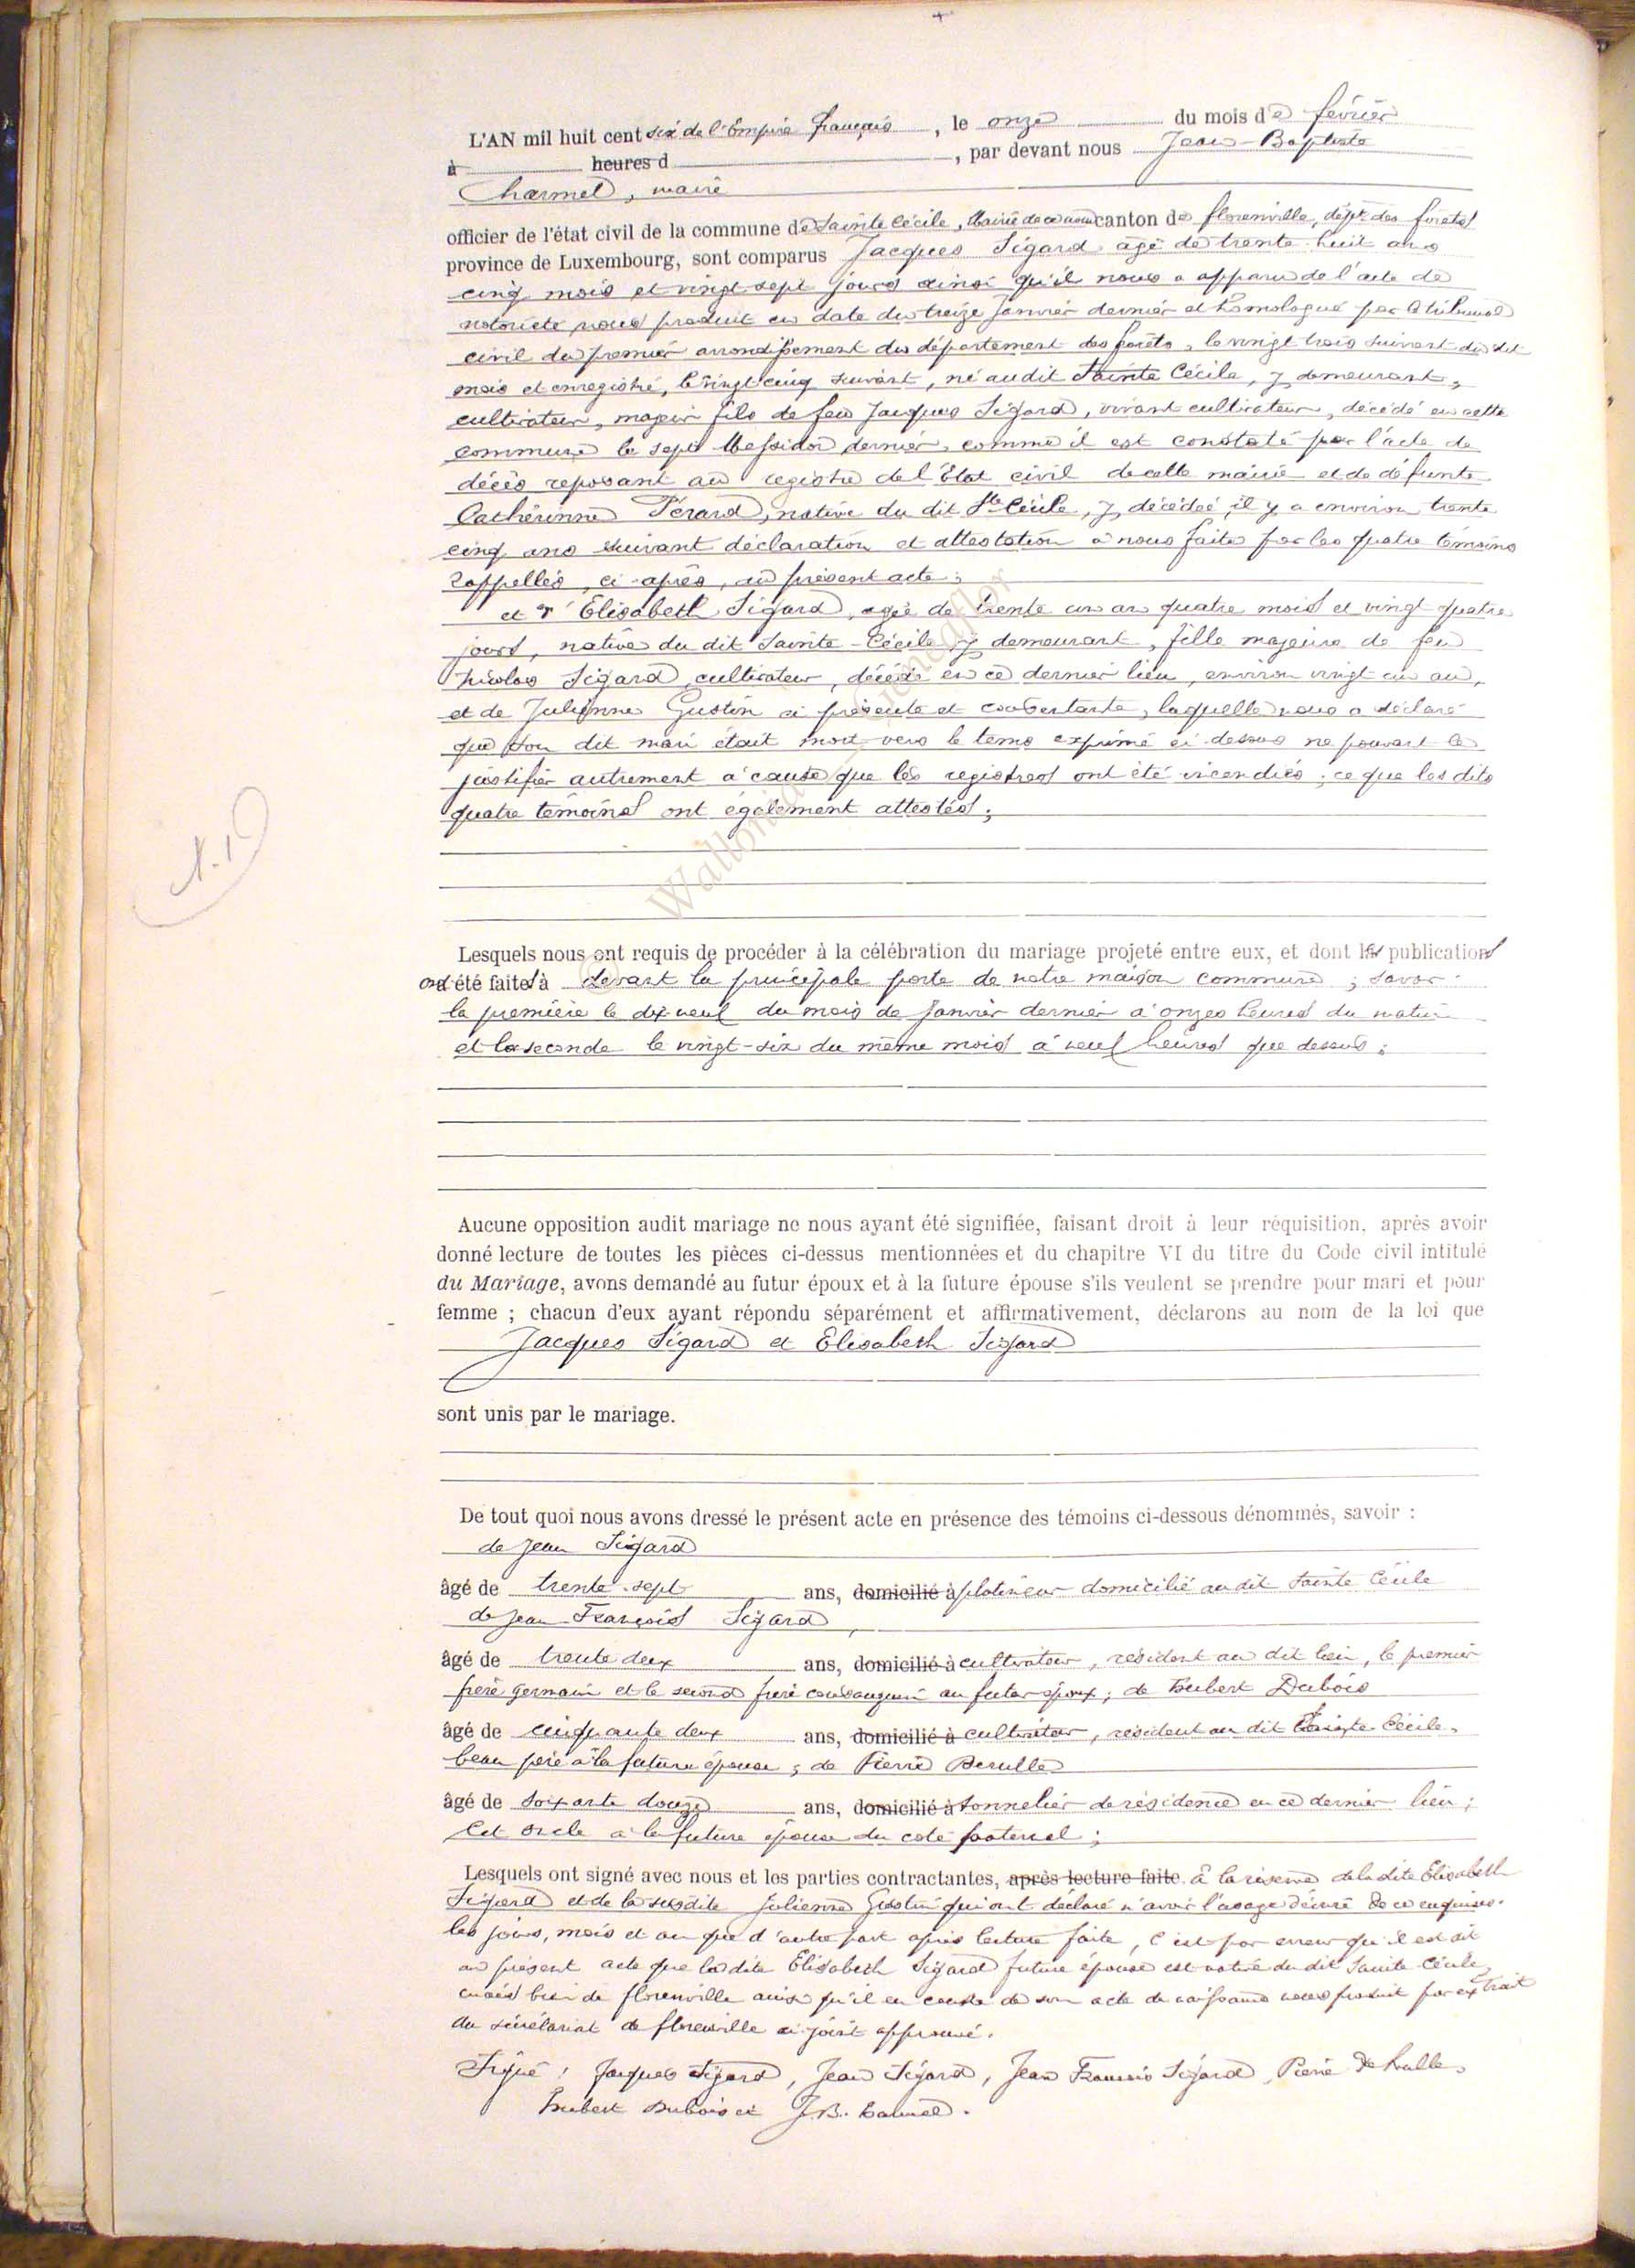 L'AN mil huit cent six de l'Empire français, le onze du mois de février
à heures d , par devant nous Jean-Baptiste
Charmel, maire
officier de l'état civil de la commune de Sainte Cécile, Mairie de ce nom canton de florenville, dépt des forêts
province de Luxembourg, sont comparus Jacques Sigard âgé de trente-huit ans
cinq mois et vingt sept jours ainsi qu'il nous a apparu de l'acte de
notoriété nous produit en date du treize janvier dernier et homologué par le tribunal
civil du premier arrondissement du département des forêts, le vingt trois suivant du dit
mois et enregistré, le vingt cinq suivant, né audit Sainte Cécile, y demeurant,
cultivateur, majeur fils de feu Jacques Sigard, vivant cultivateur, décédé en cette
commune le sept Messidor dernier, comme il est constaté par l'acte de
décès reposant au registre de l'état civil de cette mairie et de défunte
Cathérinne Pérard, native du dit Ste Cécile, y décédée, il y a environ trente
cinq ans suivant déclaration et attestation à nous faite par les quatre témoins
rappellés, ci-après, au présent acte;
et d'Elisabeth Sigard, agée de trente un an quatre mois et vingt quatre
jours, native du dit Sainte-Cécile y demeurant, fille majeure de feu
Nicolas Sigard, cultivateur, décédé en ce dernier lieu, environ vingt un an,
et de Julienne Gustin ci présente et consentante, laquelle nous a déclaré
que son dit mari était mort vers le tems exprimé ci-dessus ne pouvant le
justifier autrement à cause que les registres ont été incendiés; ce que les dits
quatre témoins ont également attestés;
N. 1
Lesquels nous ont requis de procéder à la célébration du mariage projeté entre eux, et dont les publications
ont été faites à devant la principale porte de notre maison commune; savoir
la première le dix-neuf du mois de janvier dernier à onzes heures du matin
et la seconde le vingt-six du même mois à neuf heures que dessus;
Aucune opposition audit mariage ne nous ayant été signifiée, faisant droit à leur réquisition, après avoir
donné lecture de toutes les pièces ci-dessus mentionnées et du chapitre VI du titre du Code civil intitulé
du Mariage, avons demandé au futur époux et à la future épouse s'ils veulent se prendre pour mari et pour
femme ; chacun d'eux ayant répondu séparément et affirmativement, déclarons au nom de la loi que
Jacques Sigard et Elisabeth Sigard
sont unis par le mariage.
De tout quoi nous avons dressé le présent acte en présence des témoins ci-dessous dénommés, savoir :
de Jean Sigard
âgé de trente-sept ans, domicilié à platineur domicilié au dit Sainte Cécile
de Jean François Sigard,
âgé de trente deux ans, domicilié à cultivateur, résident au dit lieu, le premier
frère germain et le second frère consanguin au futur époux; de Hubert Dubois
âgé de cinquante deux ans, domicilié à cultivateur, résident au dit Sainte Cécile,
beau père à la future épouse; de Pierre
âgé de soixante douze ans, domicilié à tonnelier de résidence en ce dernier lieu;
Cet oncle à la future épouse du coté paternel;
Lesquels ont signé avec nous et les parties contractantes, après lecture faite à la réserve de la dite Elisabeth
Sigard et de la susdite Julienne Gustin qui ont déclaré n'avoir l'usage d'écrire de ce enquises.
les jours, mois et an que d'autre part après lecture faite, c'est par erreur qu'il est dit
au présent acte que la dite Elisabeth Sigard future épouse est native du dit Sainte Cécile,
mais bien de florenville ainsi qu'il en conste de son acte de naissance nous produit par extrait
du sécrétariat de florenville ci-joint approuvé.
Signé : Jacques Sigard, Jean Sigard, Jean François Sigard, Pierre
Hubert Dubois et J.B.